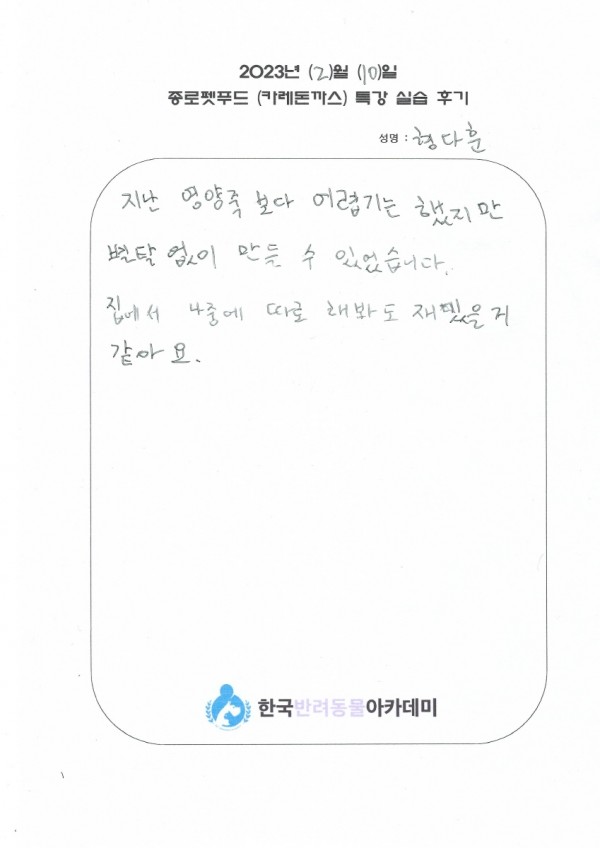 2023년 (2)월 (10)일
종로펫푸드 (카레돈까스) 특강 실습 후기
성명 : 형다훈
지난 영양죽 보다 어렵기는 했지만
별탈 없이 만들 수 있었습니다.
집에서 나중에 따로 해봐도 재밌을거
같아요.
한국반려동물아카데미